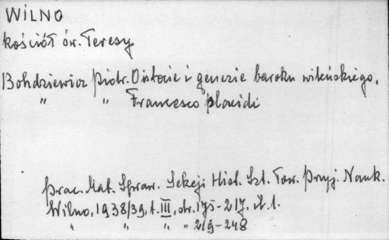 WILNO
Kościół św. Teresy
Bohdziewicz Piotr. O istocie i genezie baroku wileńskiego.
" " Francesco Placidi
Prac. Mat. Spraw. Sekcji Hist. Szt. Tow. Przyj. Nauk.
Wilno, 1938/39, t. III, str. 175-217. il. 1.
" " " " 219-248